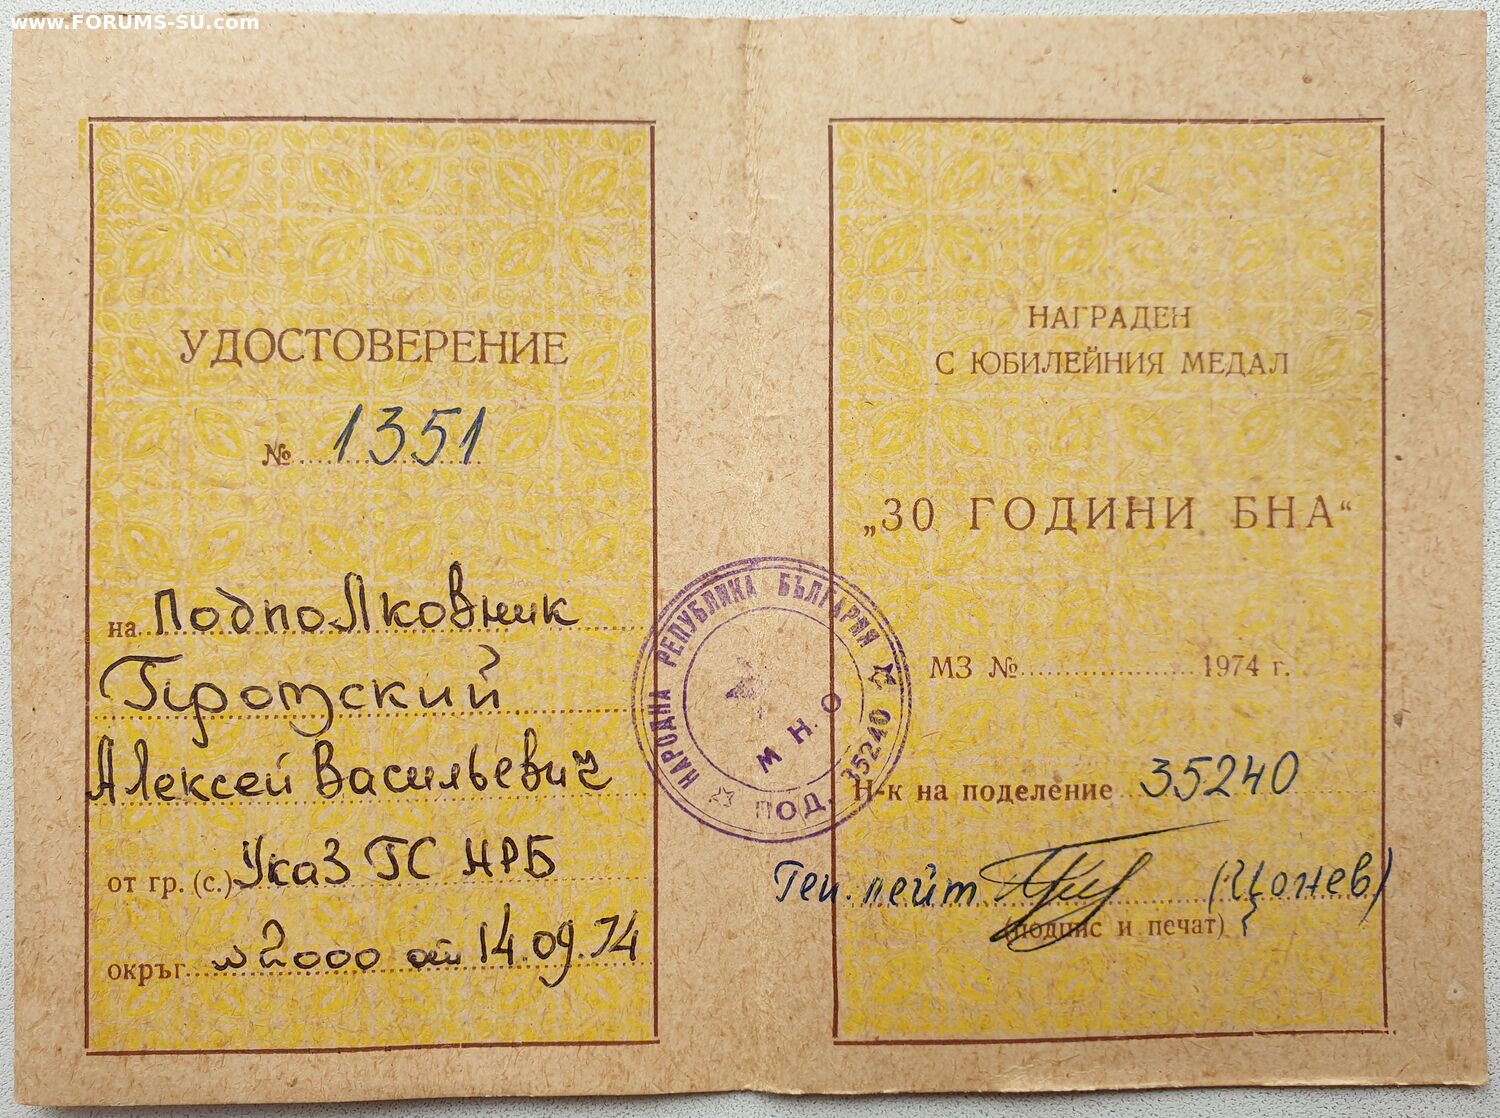 www.FORUMS-SU.com
УДОСТОВЕРЕНИЕ
№ 1351
на Подполковник
Протский
Алексей Васильевич
от гр. (с.) Указ ГС НРБ
окръг № 2000 от 14.09.74
НАГРАДЕН
С ЮБИЛЕЙНИЯ МЕДАЛ
„30 ГОДИНИ БНА“
МЗ № 1974 г.
Н-к на поделение 35240
Ген. лейт (Цонев)
(подпис и печат)
НАРОДНА РЕПУБЛИКА БЪЛГАРИЯ
М Н. О
ПОД. 35240